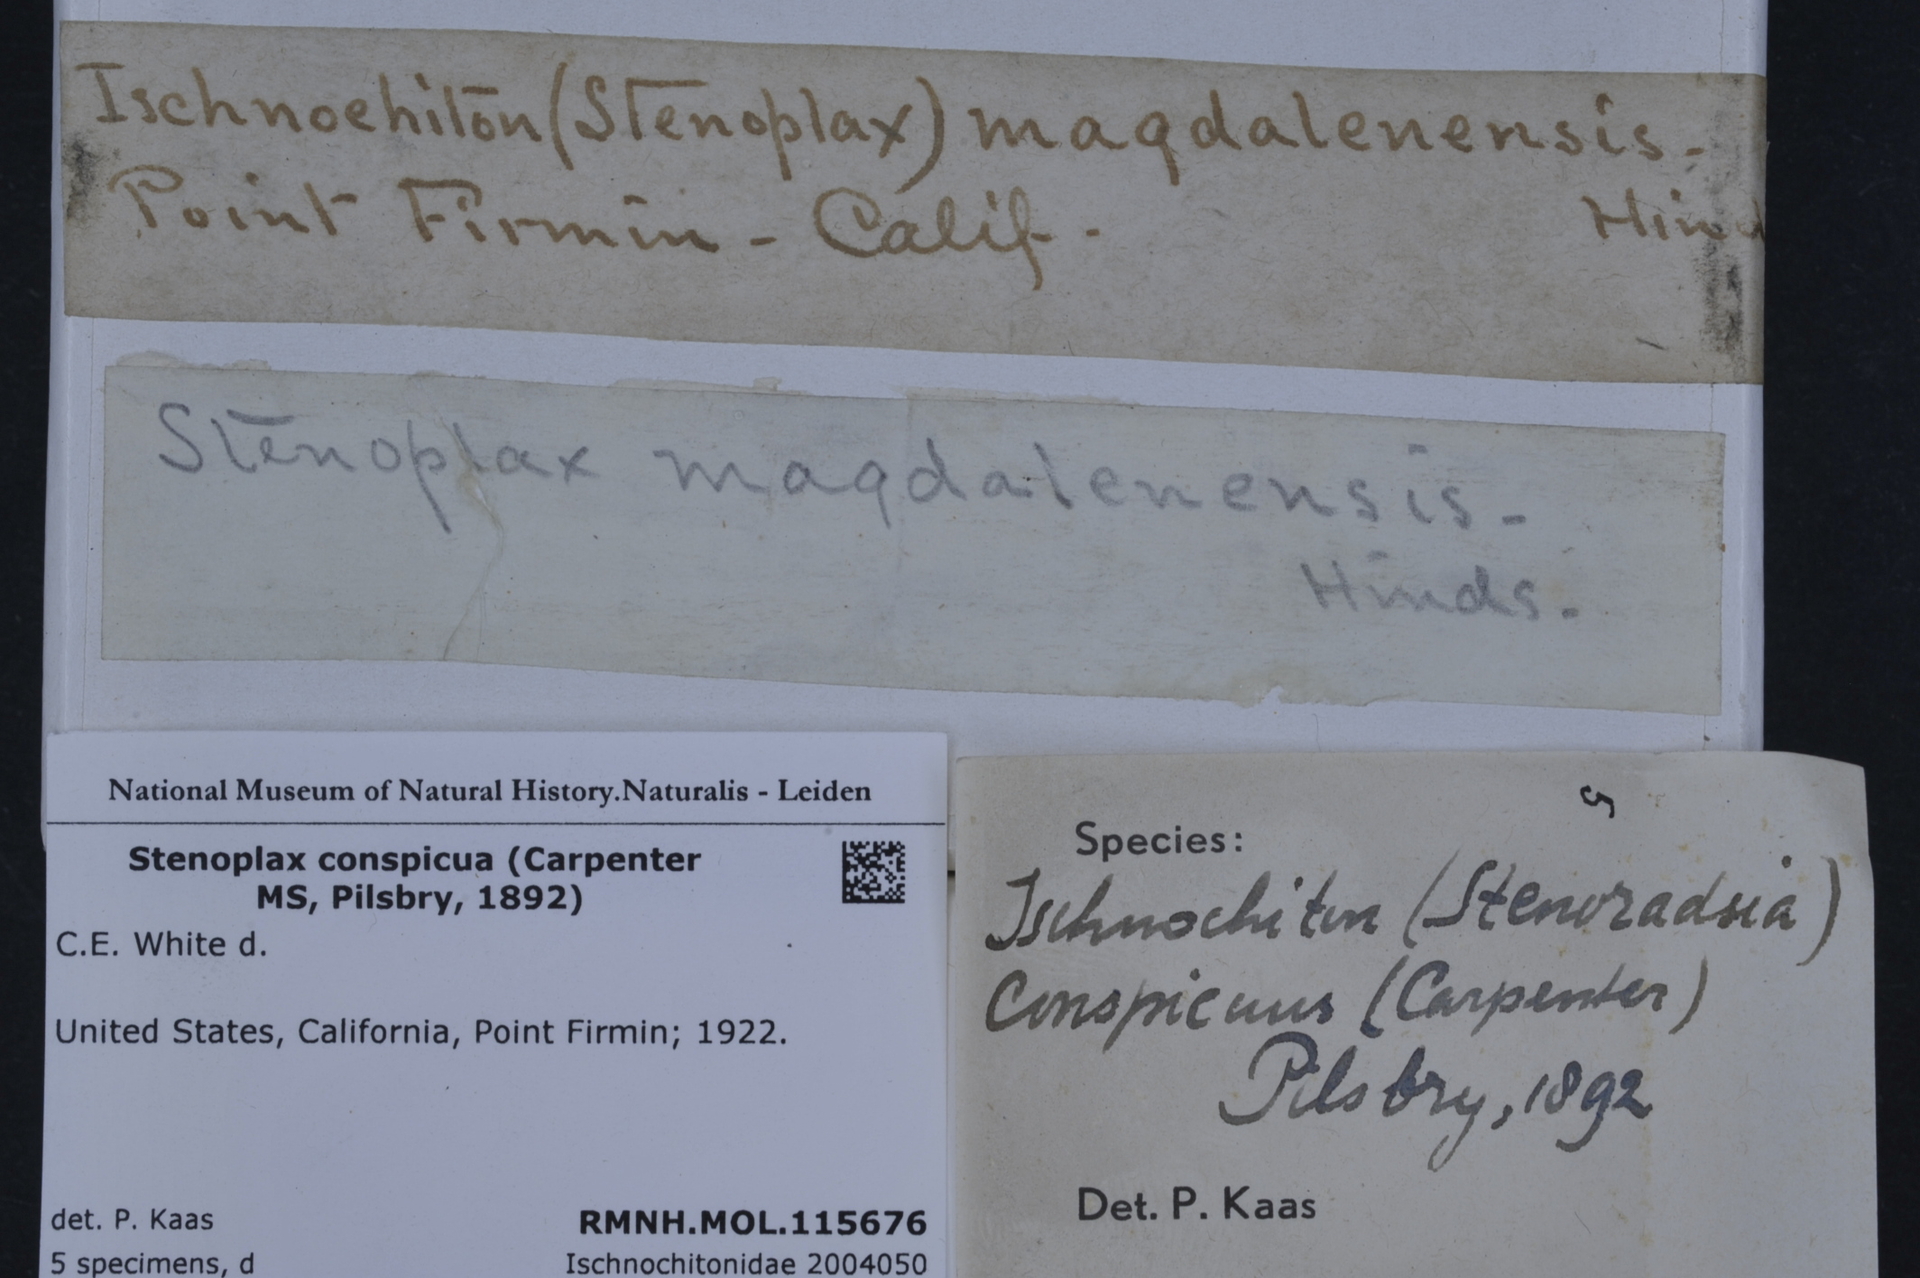 Ischnochiton (Stenoplax) magdalenensis -
Point Firmin - Calif. -
Hind
Stenoplax magdalenensis -
Hinds.
National Museum of Natural History.Naturalis - Leiden
Stenoplax conspicua (Carpenter
MS, Pilsbry, 1892)
C.E. White d.
United States, California, Point Firmin; 1922.
det. P. Kaas
RMNH.MOL.115676
5 specimens, d
Ischnochitonidae 2004050
5
Species:
Ischnochiton (Stenoradsia)
Conspicuus (Carpenter)
Pilsbry, 1892
Det. P. Kaas